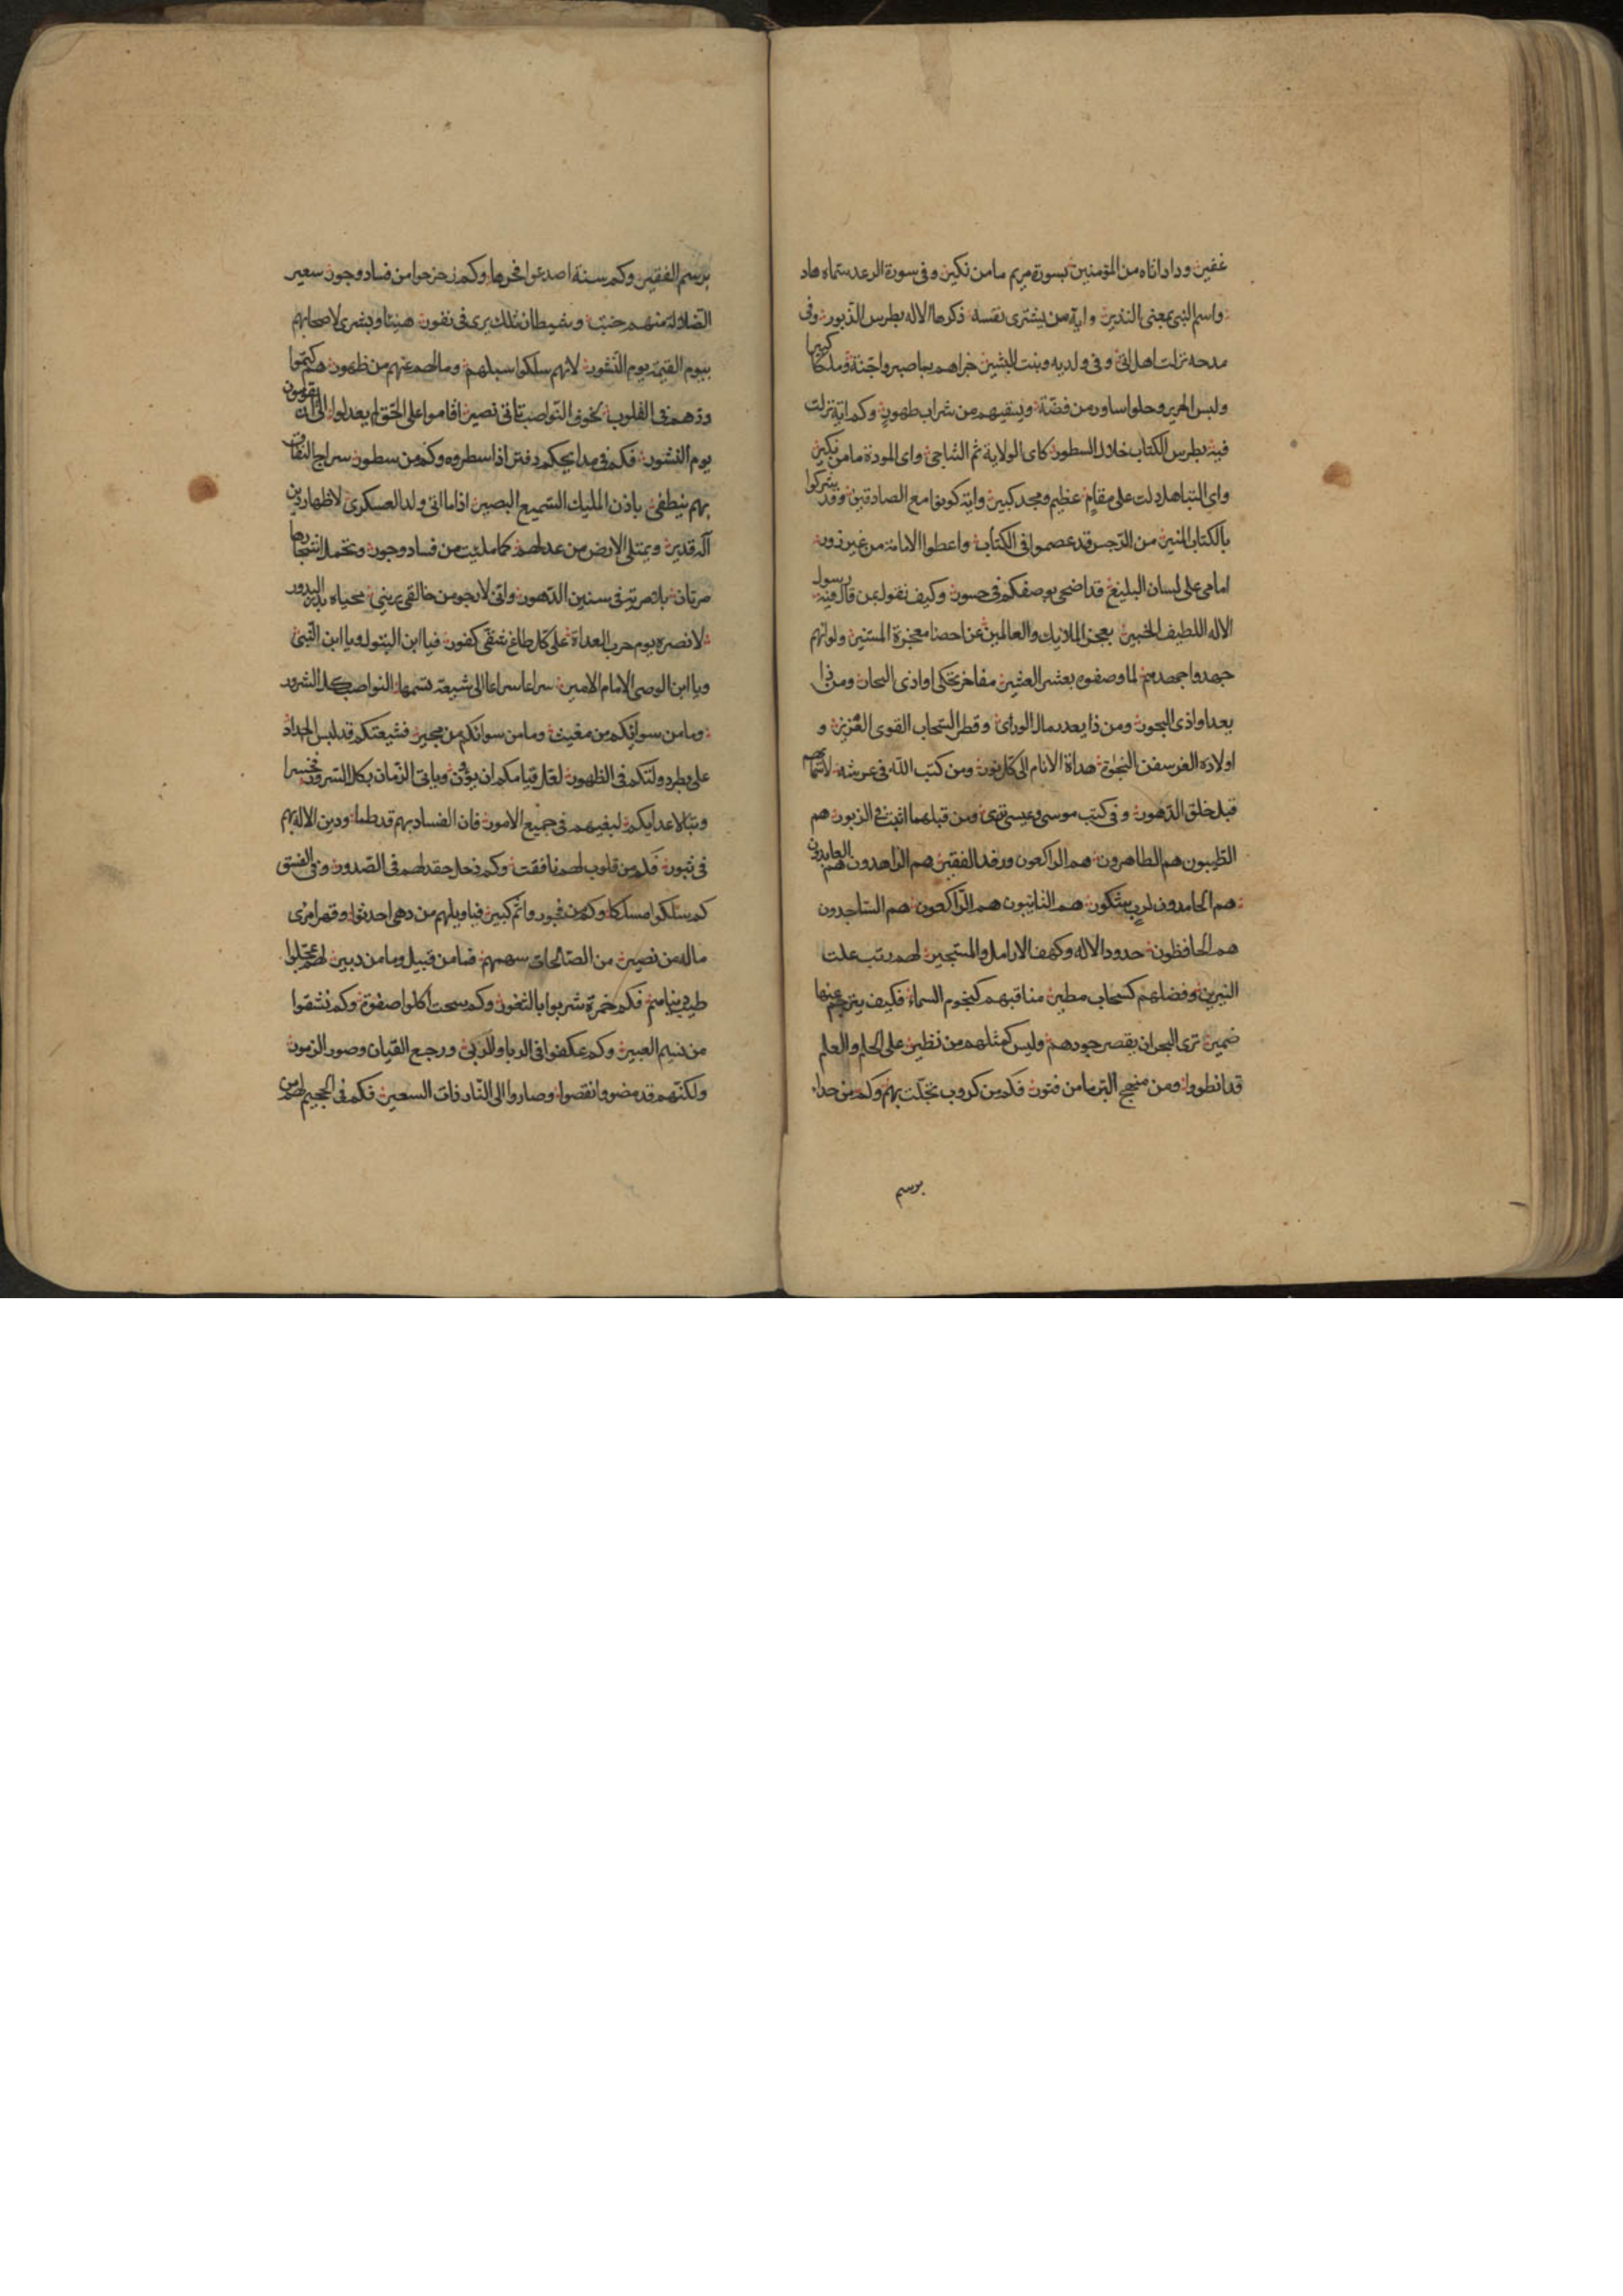 غفير وداداناه من المؤمنين بسورة مريم مامن نكير وفى سورة الرعد سماه هاد
واسم النبى بمعنى النذير واية من يشترى نفسه ذكرها الاله بطرس الذبور وفى
مدحه نزلت اهل اتى وفى ولديه وبنت البشير جزاهم بما صبروا جنة وملكا كبيرا
ولبس الحرير وحلوا ساور من فضة ويسقيهم من شراب طهور وكم اية نزلت
فيه بطرس الكتاب خلال السطور كاى الولاية ثم التناجى واى المودة مامن نكير
واى التباهل دلت على مقام عظيم ومجد كبير واية كونوا مع الصادقين وقد يشركوا
بالكتاب المنير من الرجس قد عصموا فى الكتاب واعطوا الامانة من غير زور
امامى على لسان البليغ قد اضحى بوصفكم فى حسور وكيف نقول بمن قال فيه رسول
الاله اللطيف الخبير بعجز الملايك والعالمين عن احصا معجزة المستنير ولو انهم
جهدوا جهدهم لما وصفوه بعشر العشير مفاخر تحكى اواذى البحار ومن ذا
يعد اواذى البحور ومن ذا يعد رمال الوراى وقطر السحاب القوى الغزير و
اولاده الغر سفن النجوة هداة الانام الى كل نور ومن كتب الله فى عرشه لاسمائهم
قبل خلق الدهور وفى كتب موسى وعيسى ترى ومن قبلهما اثبت فى الزبور هم
الطيبون هم الطاهرون هم الراكعون ورفد الفقير هم الزاهدون هم العابدون
هم الحامدون لرب شكور هم التائبون هم الراكعون هم الساجدون
هم الحافظون حدود الاله وكهف الارامل والمستجير لهم رتب علت
النيرين وفضلهم كسحاب مطير مناقبهم كنجوم السماء فكيف يترجم عنها
ضمير ترى البحر ان يقصر جودهم وليس كمثلهم من نظير على الحلم والعلم
قد انطووا ومن منهج البر مامن فتور فكم من كروب تجلت بهم وكم من جدا
برسم
برسم الفقير وكم سنة اصدعوا فخرها وكم زحزحوا من فساد وجور سعير
الضلالة منهم خبت وشيطان تلك يرى فى نفور هنيئا وبشرى لاصحابهم
بيوم القيمة يوم النشور لانهم سلكوا سبلهم وما لهم عنهم من ظهور هم كتموا
ودهم فى القلوب لخوف النواصب تاتى نصير اقاموا على الحق لم يعدلوا الى ان يقومون
يوم النشور فكم فى مدايحكم دفتر اذا سطروه وكم من سطور سراج النفاق
بهم ينطفى باذن المليك السميع البصير اذا ما اتى ولد العسكرى لاظهار دين
اله قدير ويمتلى الارض من عدلهم كما ملئت من فساد وجور وتحمل اشجارها
مرتان باثمرية فى سنين الدهور وانى لارجو من خالقى يرينى محياه بدر البدور
لانصره يوم حرب العداة على كل طاغ شقى كفور فيا ابن البتول ويا ابن النبى
ويا ابن الوصى الامام الامير سراعا سراعا الى شيعة تسمها النواصب كل الشرور
وما من سوائكم من مغيث وما من سوائكم من مجير فشيعتكم قد لبس الحداد
على بطر دولتكم فى الظهور لعل قيامكم ان يؤن وياتى الزمان بكل السرور فخسرا
وتبا لاعدايكم لبغيهم فى جميع الامور فان الفساد بهم قد طما ودين الاله بهم
فى ثبور فكم من قلوب لهم نافقت وكم دخل حقد لهم فى الصدور وفى الفسق
كم سلكوا مسلكا وكم من فجور واثم كبير فيا ويلهم من دهى احدثوا وقهر امرى
ماله من نصير من الصالحات سهمهم فما من قبيل وما من دبير لهم عجلوا
طيب نياهم فكم خمرة شربوا بالثغور وكم سحت اكلوا صفوة وكم نشقوا
من نسيم العبير وكم عكفوا فى الربا والربى ورجع القيان وصور الزمور
ولكنهم قد مضوا وانقضوا وصاروا الى النار ذات السعير فكم فى الجحيم لهم من